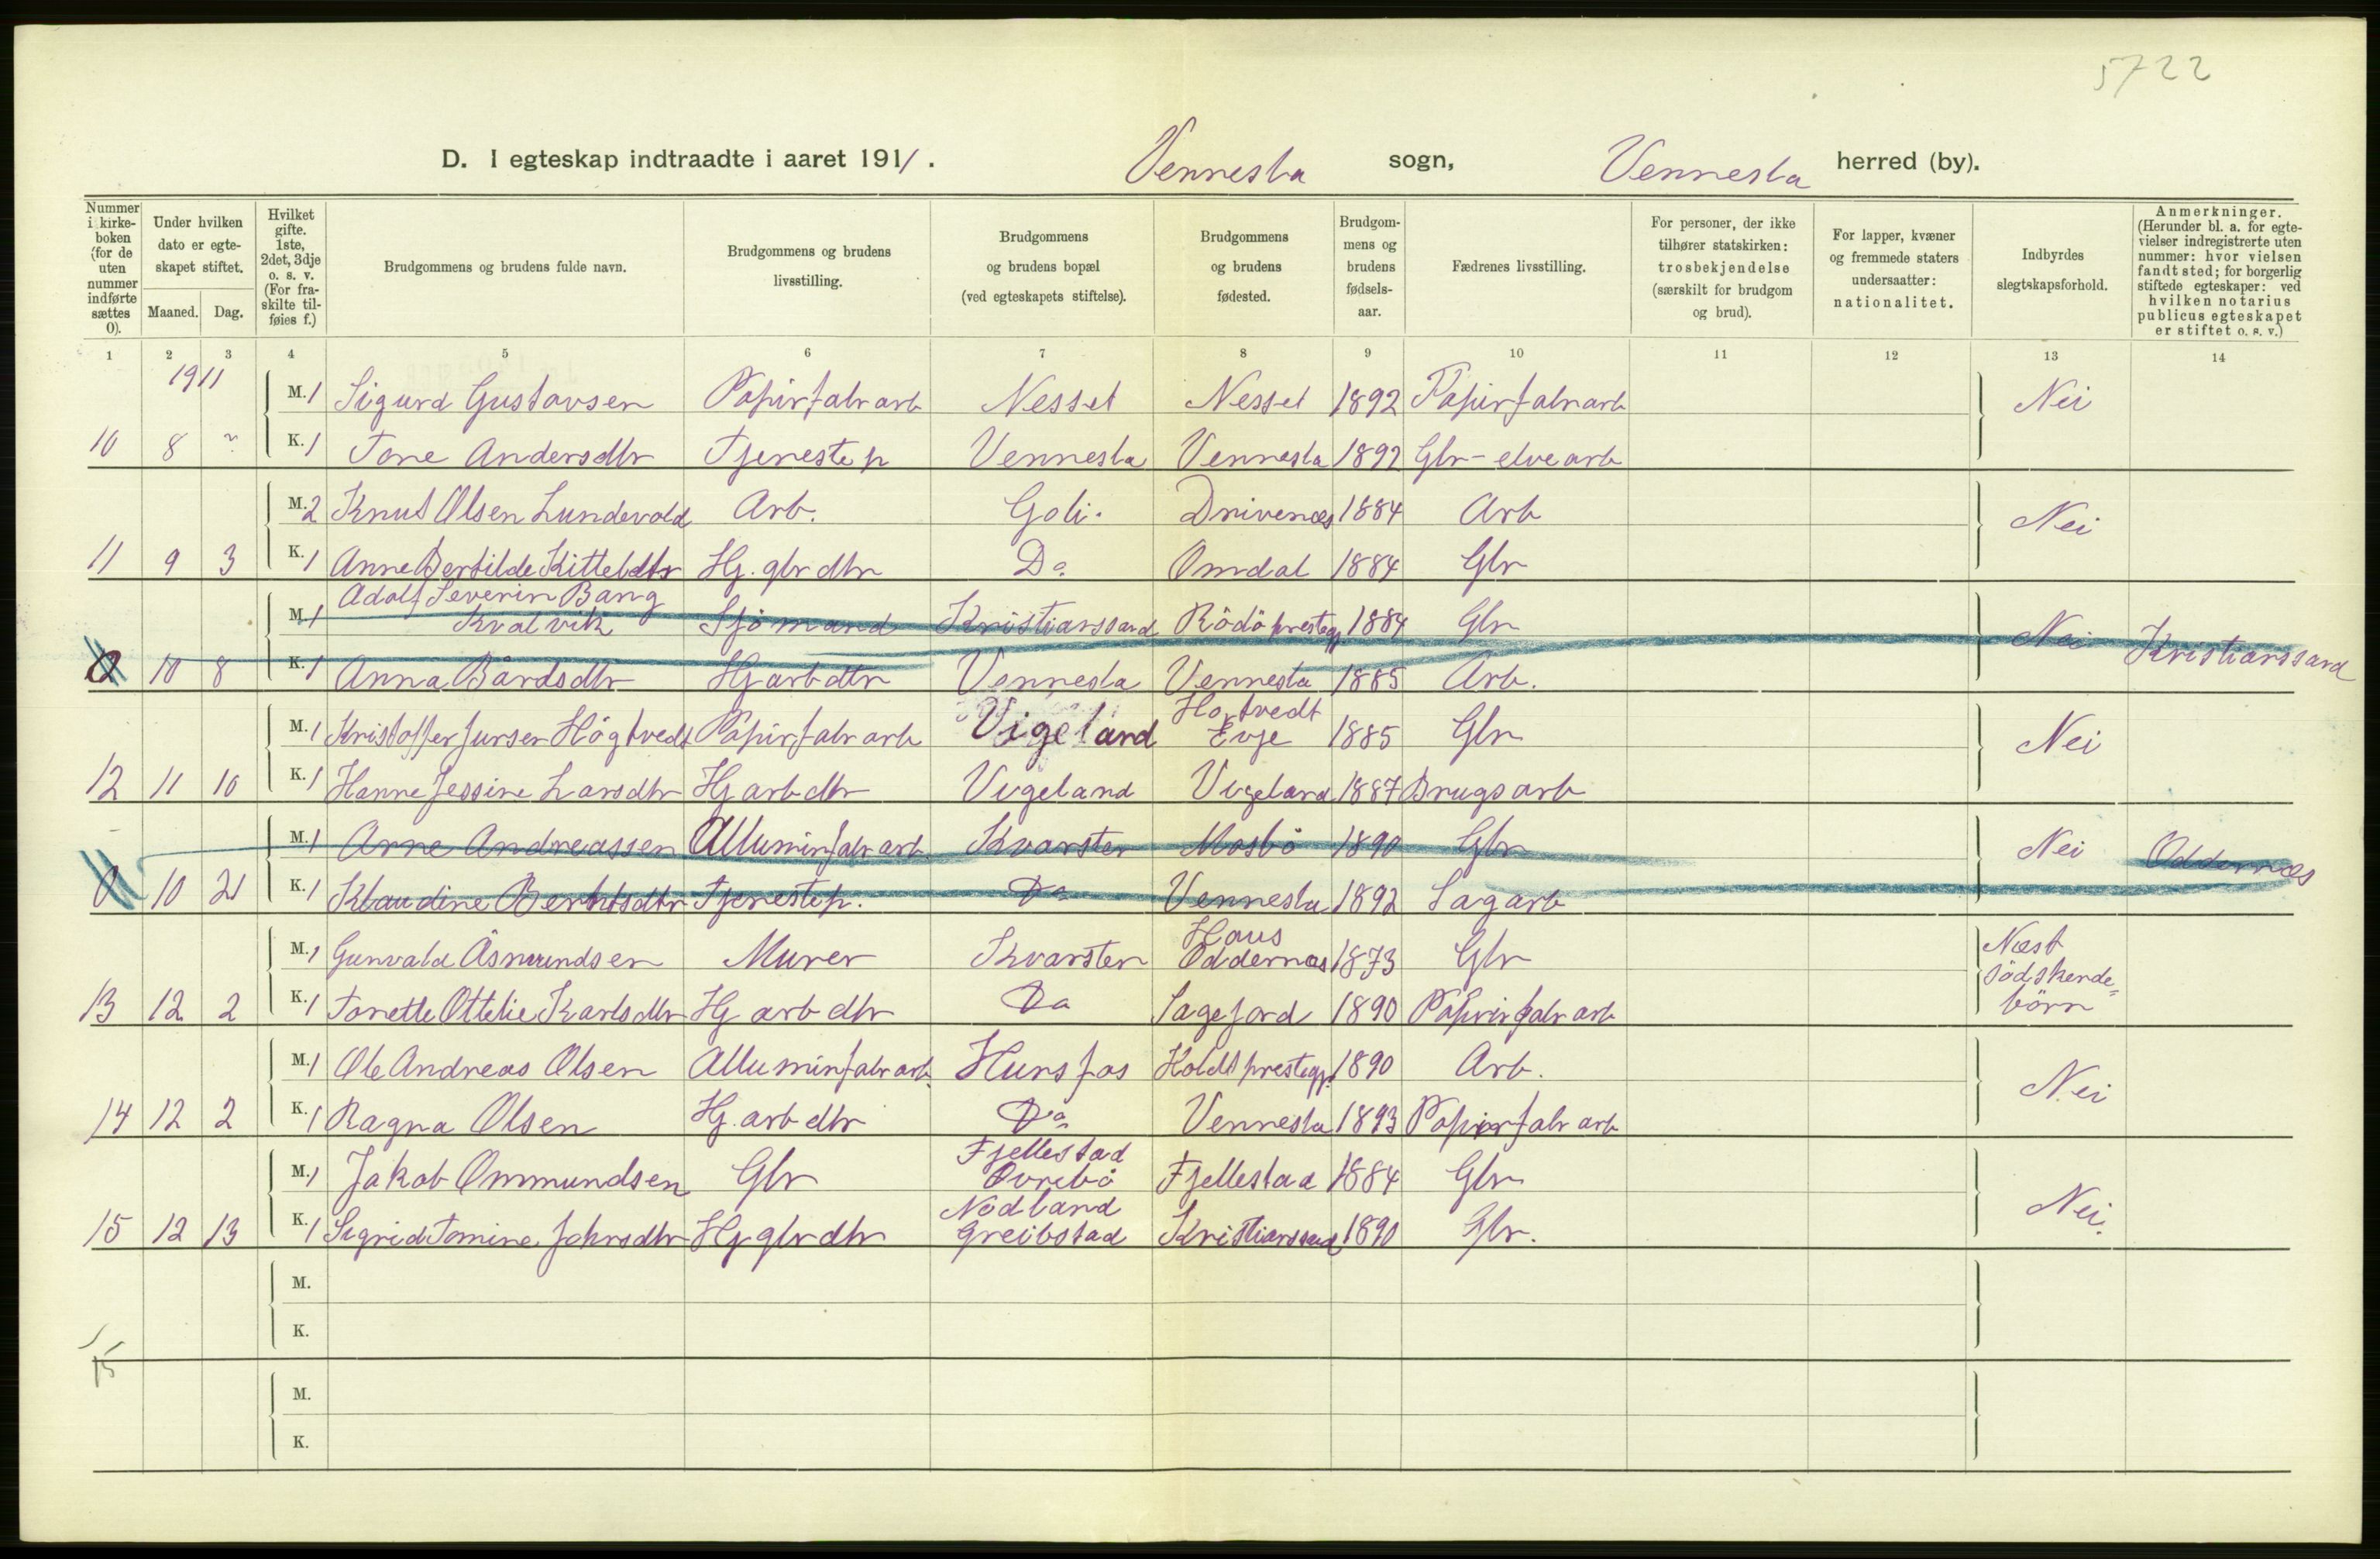 5722
D. I egteskap indtraadte i aaret 1911. Vennesla sogn, Vennesla herred (by).
Nummer i kirkeboken (for de uten nummer indførte sættes 0). Under hvilken dato er egteskapet stiftet. Maaned. Dag. Hvilket gifte. 1ste, 2det, 3dje o. s. v. (For fraskilte tilføies f.) Brudgommens og brudens fulde navn. Brudgommens og brudens livsstilling. Brudgommens og brudens bopæl (ved egteskapets stiftelse). Brudgommens og brudens fødested. Brudgommens og brudens fødselsaar. Fædrenes livsstilling. For personer, der ikke tilhører statskirken: trosbekjendelse (særskilt for brudgom og brud). For lapper, kvæner og fremmede staters undersaatter: nationalitet. Indbyrdes slegtskapsforhold. Anmerkninger. (Herunder bl. a. for egtevielser indregistrerte uten nummer: hvor vielsen fandt sted; for borgerlig stiftede egteskaper: ved hvilken notarius publicus egteskapet er stiftet o. s. v.)
1 2 3 4 5 6 7 8 9 10 11 12 13 14
1911
M. 1 Sigurd Gustavsen Papirfabrarb Nesset Nesset 1892 Papirfabrarb Nei
10 8 K. 1 Tone Andersdtr Tjenestep Vennesla Vennesla 1892 Gbr - elvearb
M. 2 Knut Olsen Lundevold Arb. Goli. Drivenæs 1884 Arb Nei
11 9 3 K. 1 Anne Bertilde Kitteldtr Hj. gbr dtr Do Omdal 1884 Gbr
Adolf Severin Bang
M. 1 Kvalvik Sjömand Kristianssand Rödö prestegj 1884 Gbr Nei Kristianssand
0 10 8 K. 1 Anna Bårdsdtr Hj arb dtr Vennesla Vennesla 1885 Arb.
M. 1 Kristoffer Jursen Högtvedt Papirfabrarb Vigeland Hogtvedt Evje 1885 Gbr Nei
12 11 10 K. 1 Hanne Jessine Larsdtr Hj arb dtr Vigeland Vigeland 1887 Brugsarb
M. 1 Arne Andreassen Alluminfabrarb Kvarsten Mosbö 1890 Gbr Nei Oddernæs
0 10 21 K. 1 Klaudine Berntsdtr Tjenestep. Do Vennesla 1892 Sagarb
M. 1 Gunvald Åsmundsen Murer Kvarsten Haus Oddernæs 1873 Gbr Næst södskende=börn
13 12 2 K. 1 Tonette Ottelie Karlsdtr Hj arb dtr Do Sagejord 1890 Papirfabrarb
M. 1 Ole Andreas Olsen Alluminfabrarb. Hunsfos Holdt prestegj. 1890 Arb. Nei
14 12 2 K. 1 Ragna Olsen Hj. arb dtr Do Vennesla 1893 Papirfabrarb
M. 1 Jakob Ommundsen Gbr Fjellestad Övrebö Fjellestad 1884 Gbr Nei.
15 12 13 K. 1 Sigrid Tomine Johnsdtr Hj gbr dtr Nodland Greibstad Kristianssand 1890 Gbr.
M.
K.
15
M.
K.